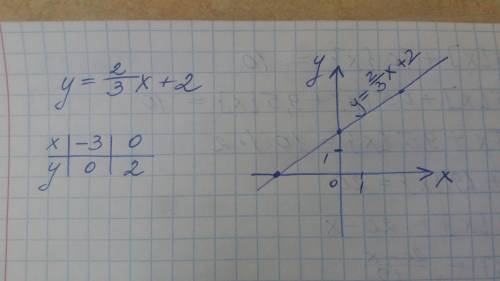 y = 2/3 x + 2
x | -3 | 0
y | 0 | 2
y
y = 2/3 x + 2
1
0 1 x